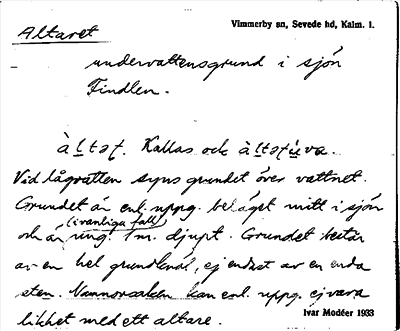 Altaret
Vimmerby sn, Sevede hd, Kalm. l.
undervattensgrund i sjön
Findlen.
àltət. Kallas och àltətùva.
Vid lågvatten syns grundet över vattnet.
Grundet är enl. uppg. beläget mitt i sjön
och är (i vanliga fall) ung. 1 m. djupt. Grundet består
av en hel grund, ej endast av en enda
sten. Namnorsaken kan enl. uppg. ej vara
likhet med ett altare.
Ivar Modéer 1933